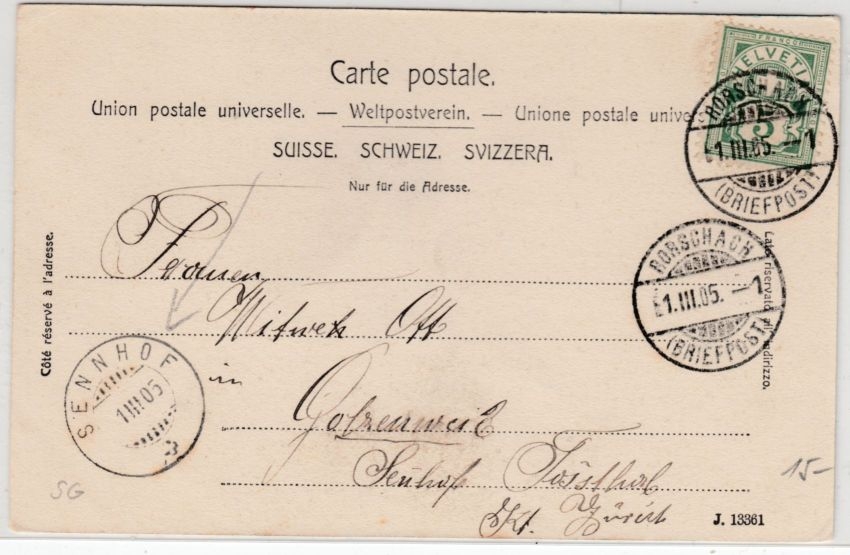 FRANCO
HELVETIA
5
RORSCHACH
1.III.05. –1
(BRIEFPOST)
Carte postale.
Union postale universelle. — Weltpostverein. — Unione postale unive
SUISSE. SCHWEIZ. SVIZZERA.
Nur für die Adresse.
Côté réservé à l'adresse.
Lato riservato all'indirizzo.
RORSCHACH
1.III.05. –1
(BRIEFPOST)
Frauen
Witwek Ott
in
Golzenweid
Senhof Tössthal
Kt. Zürich
SENNHOF
1.III.05
SG
15-
J. 13361